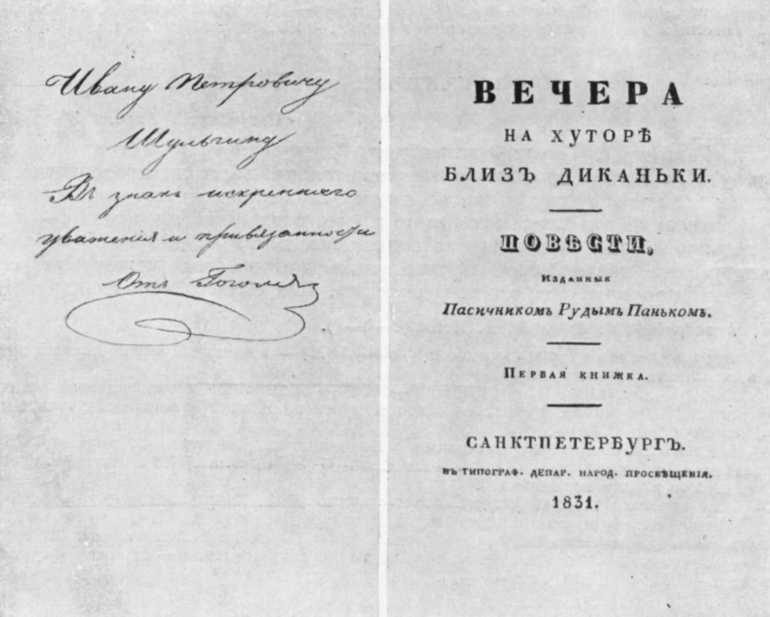 Ивану Петровичу
Шульгину
Въ знакъ искренняго
уваженія и привязанности
Отъ Гоголя
ВЕЧЕРА
НА ХУТОРѢ
БЛИЗЪ ДИКАНЬКИ.
ПОВѢСТИ,
Изданныя
Пасичникомъ Рудымъ Панькомъ.
Первая книжка.
САНКТПЕТЕРБУРГЪ.
ВЪ ТИПОГРАФ. ДЕПАР. НАРОД. ПРОСВѢЩЕНІЯ.
1831.